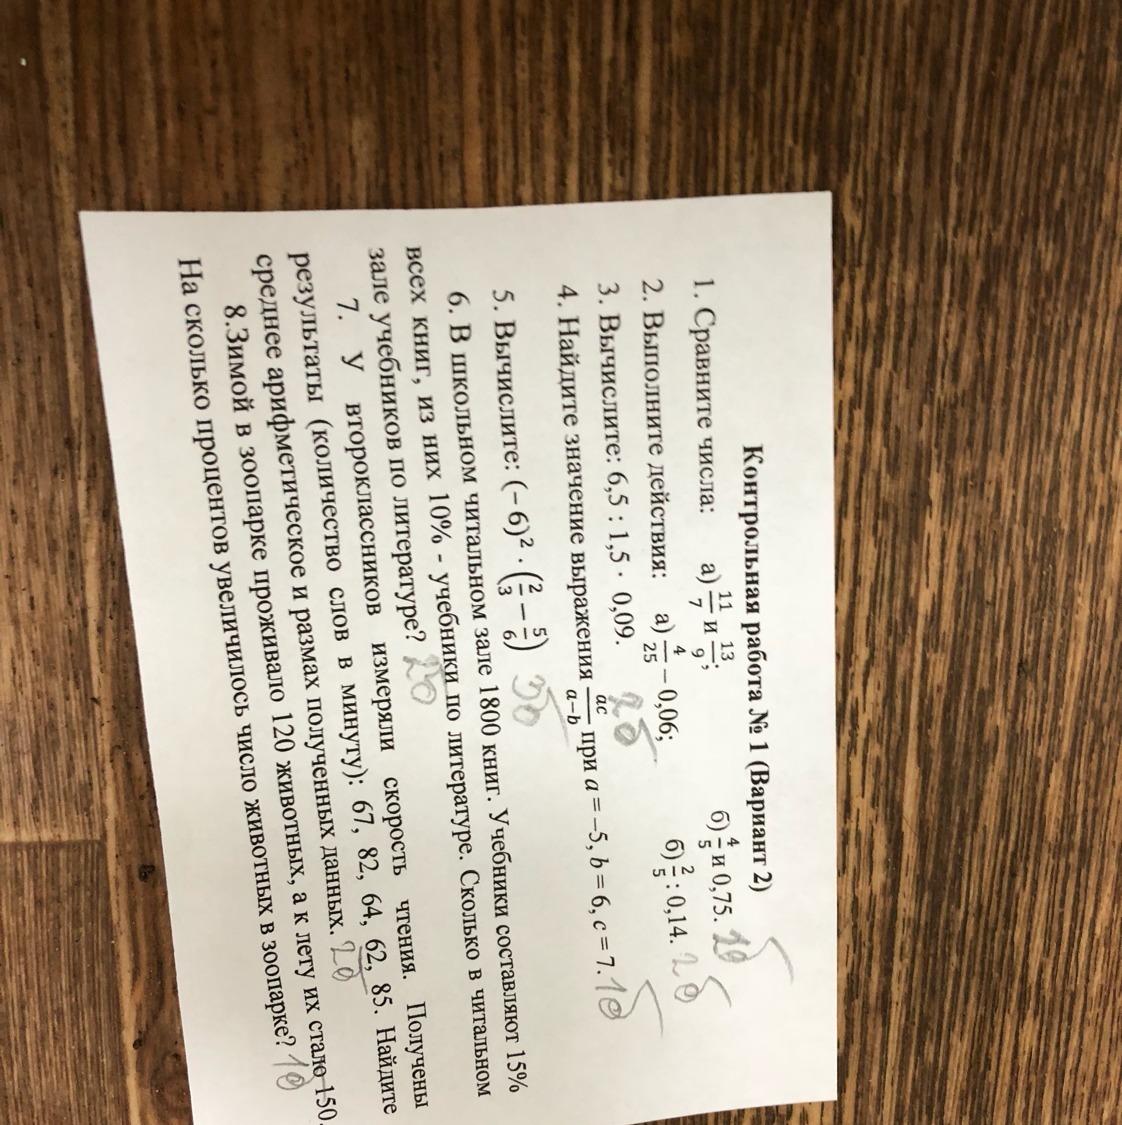 Контрольная работа № 1 (Вариант 2)
1. Сравните числа: а) 11/7 и 13/9; б) 4/5 и 0,75. 2б
2. Выполните действия: а) 4/25 − 0,06; б) 2/5 : 0,14. 2б
3. Вычислите: 6,5 : 1,5 · 0,09. 2б
4. Найдите значение выражения ac/a−b при a = −5, b = 6, c = 7. 1б
5. Вычислите: (− 6)² · (2/3 − 5/6) 3б
6. В школьном читальном зале 1800 книг. Учебники составляют 15%
всех книг, из них 10% - учебники по литературе. Сколько в читальном
зале учебников по литературе? 2б
7. У второклассников измеряли скорость чтения. Получены
результаты (количество слов в минуту): 67, 82, 64, 62, 85. Найдите
среднее арифметическое и размах полученных данных. 2б
8.Зимой в зоопарке проживало 120 животных, а к лету их стало 150.
На сколько процентов увеличилось число животных в зоопарке? 1б